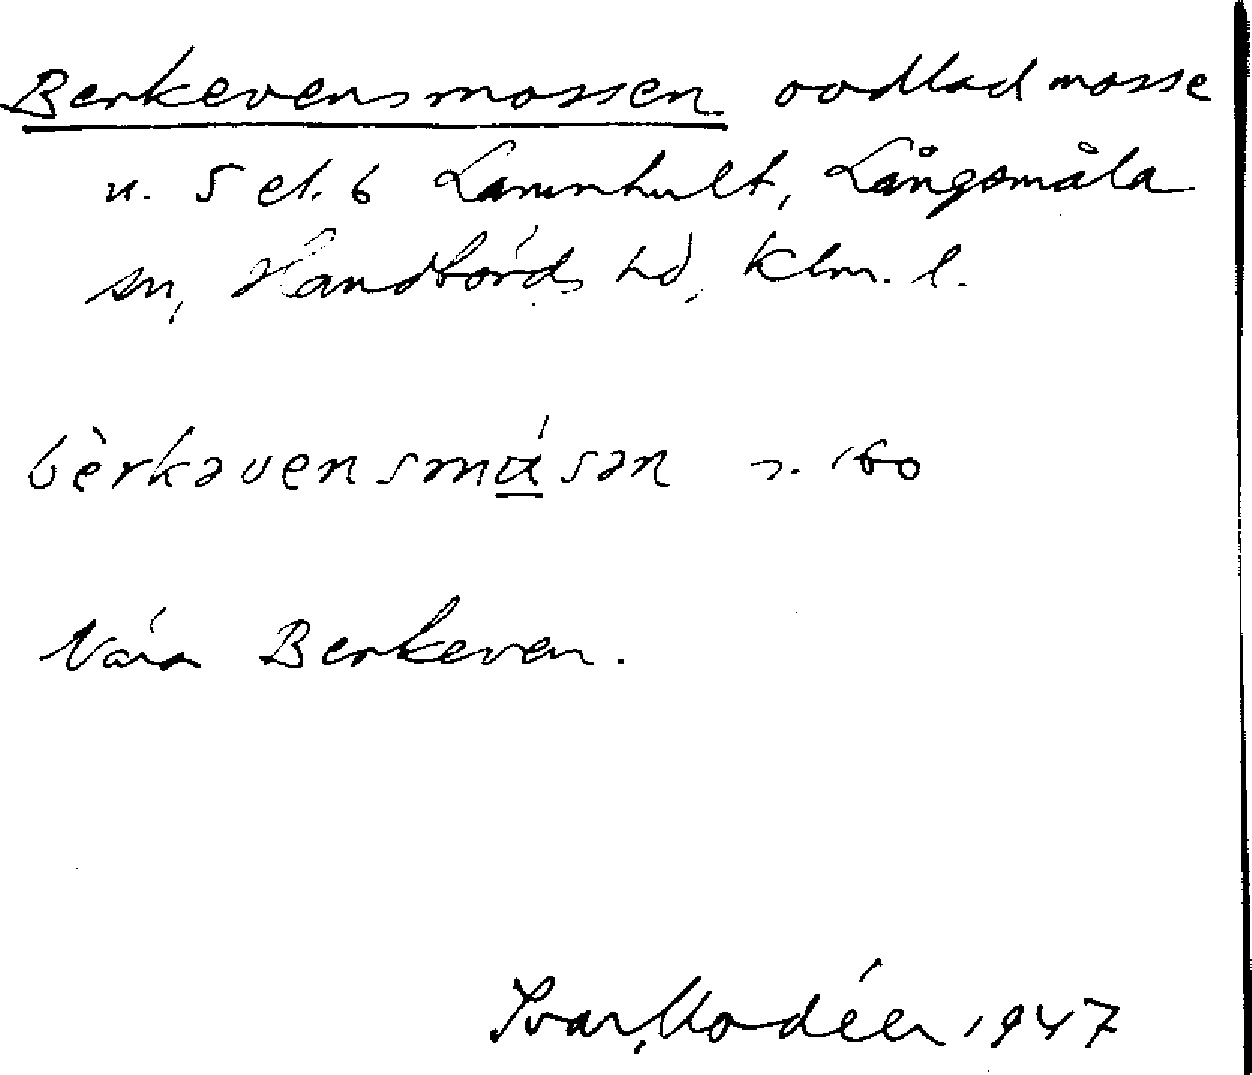 Berkevensmossen oodlad mosse
u. 5 el. 6 Lammhult, Långsmåla
sn, Handbörds hd, Klm. l.
bèrkəvensmɑ́sən
Nära Berkeven.
Ivar Modéer 1947